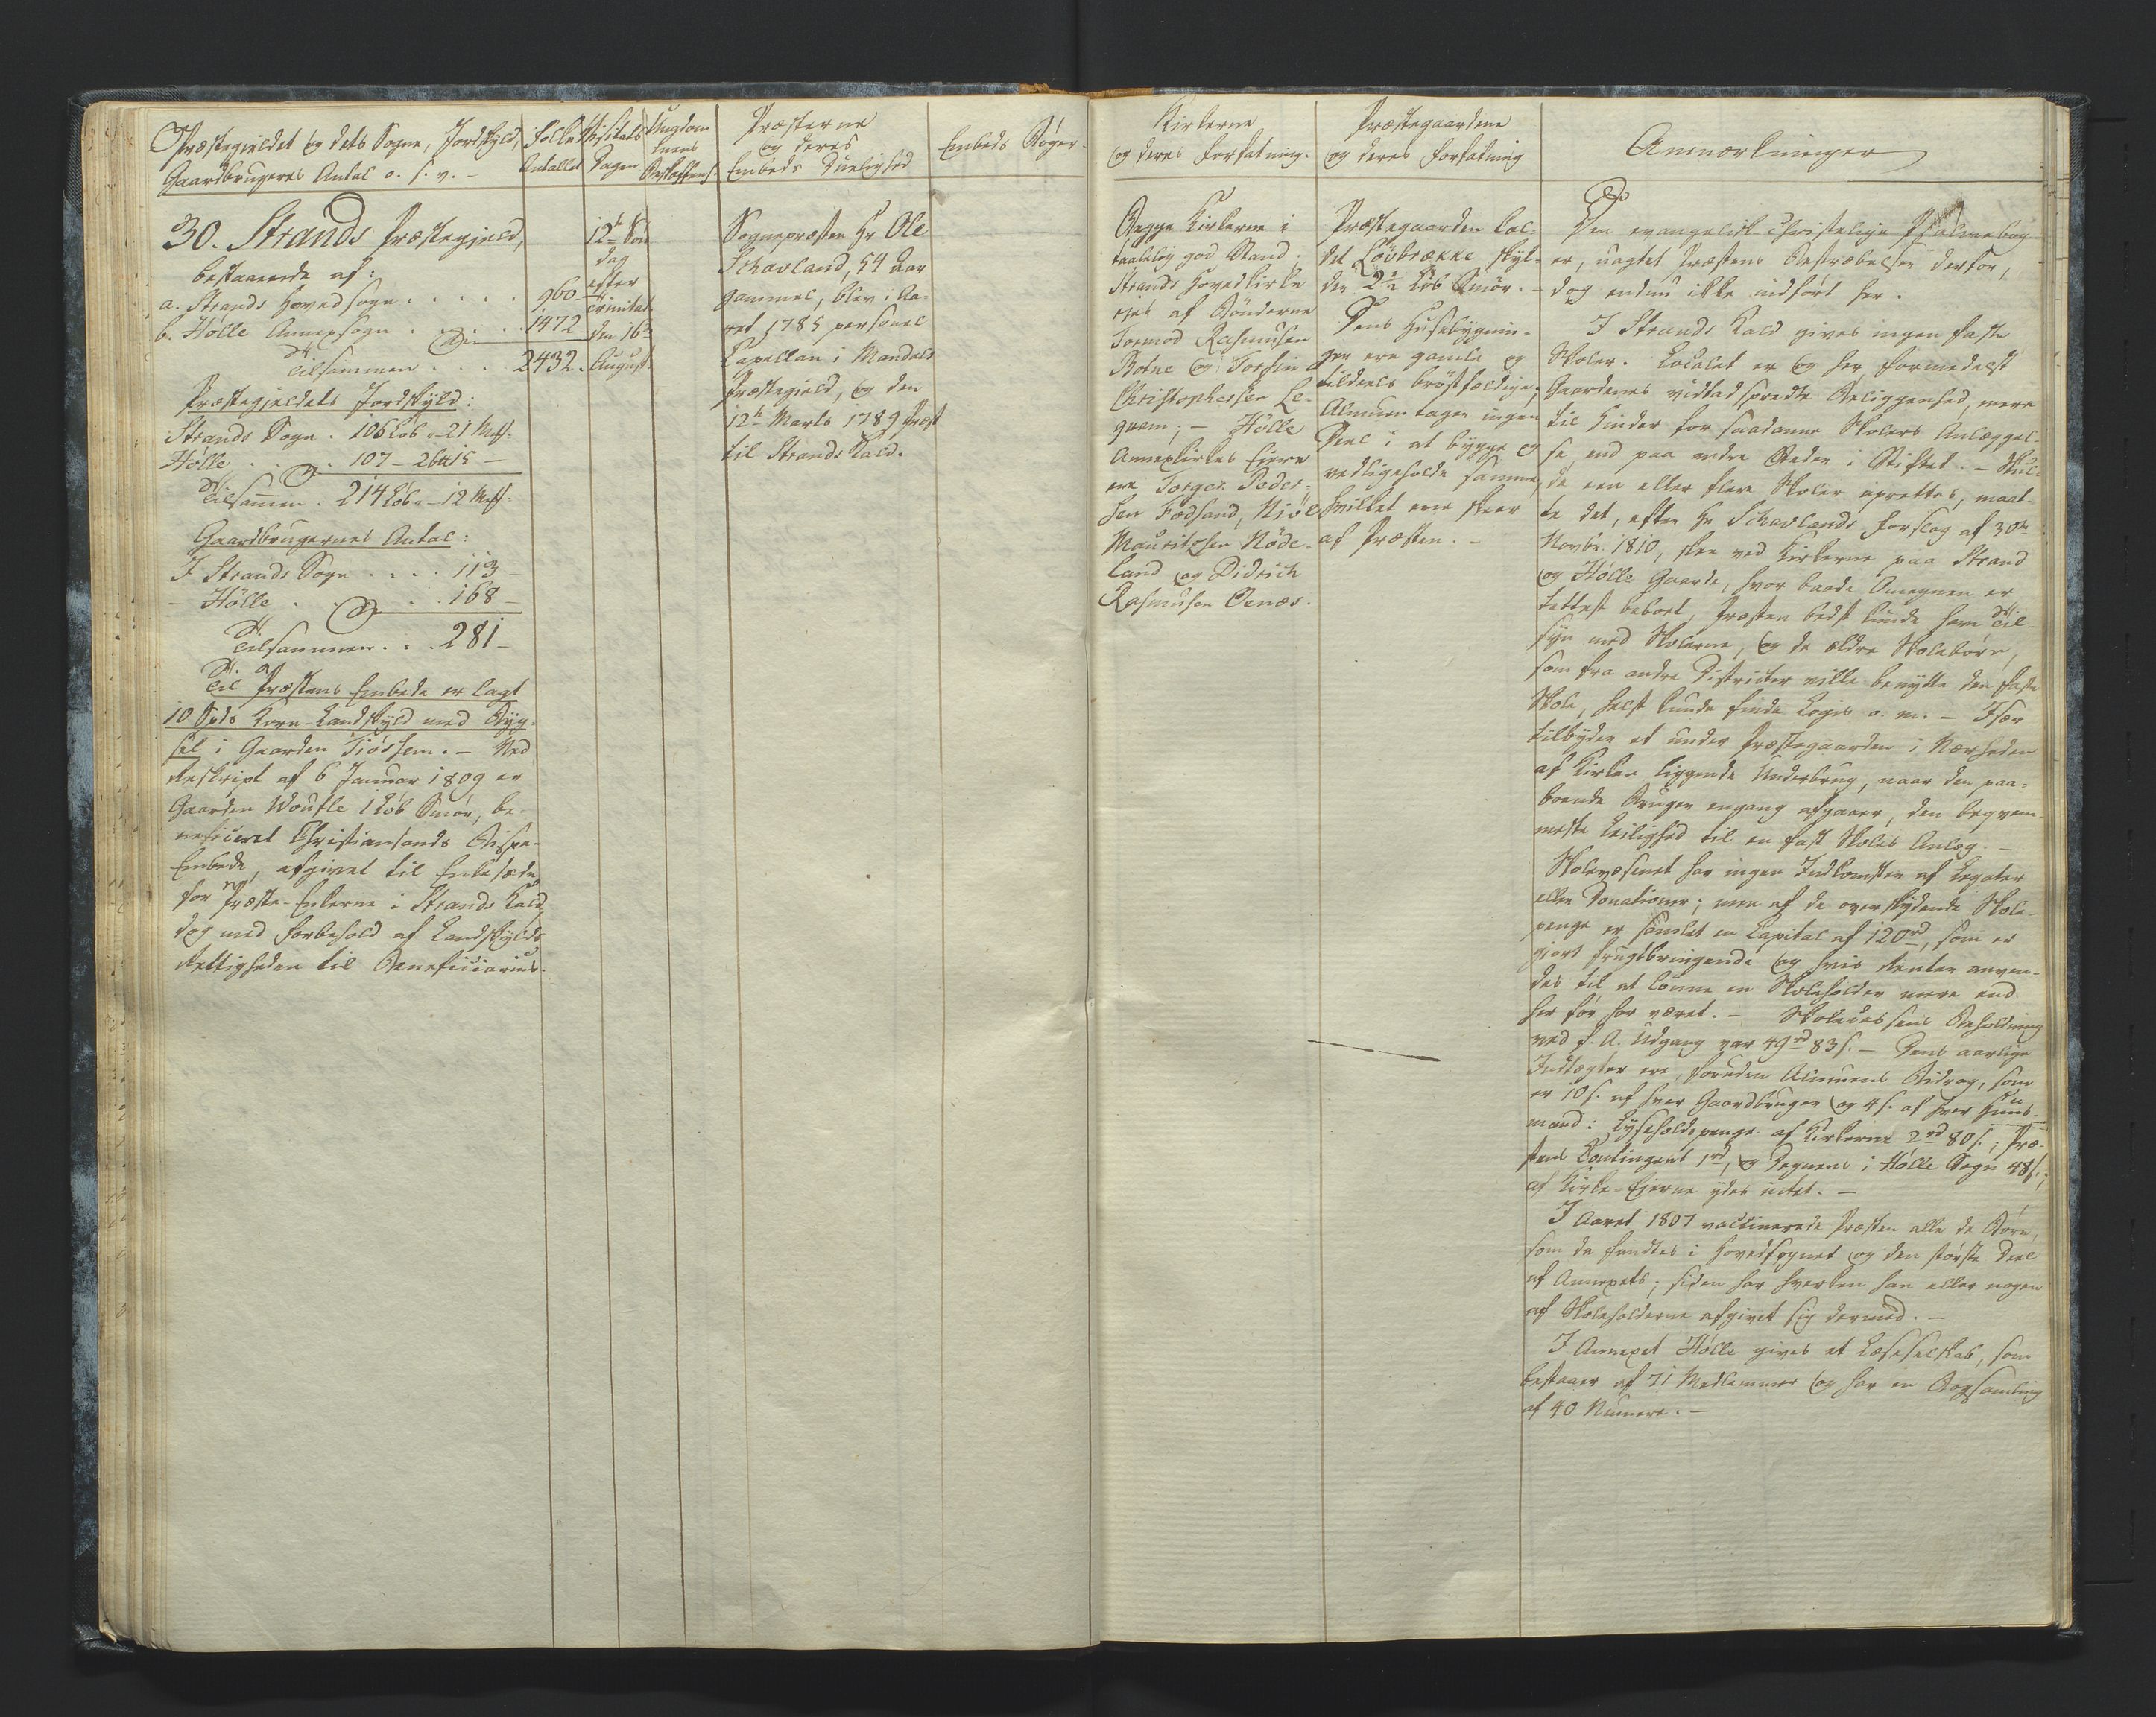 Præstegjeldet og dets Sogne, Jordskyld,
Gaardbrugeres Antal o. s. v. -
Folke
Antallet
Visitats
Dagen
Ungdom
mens
Beskaffenh.
Præsterne
og deres
Embeds Duelighed
Embeds Bøger.
30. Strands Præstegjeld,
bestaaende af:
a. Strands Hovedsogn . . . . . 960
b. Hölle Annexsogn . . . . 1472
Tilsammen . . . 2432.
Præstegjeldets Jordskyld:
Strands Sogn . 106 Löb - 21 Mk.
Hölle . . . . 107 - 2 15 -
Tilsamen . 214 Löb - 12 Mk.
Gaardbrugernes Antal:
I Strands Sogn . . . . 113 -
- Hölle . . . . . 168 -
Tilsammen . . . 281 -
Til Præstens Embede er lagt
10 Spds Korn-Landskyld med Byg-
sel i Gaarden Tiössem. - Ved
Reskript af 6 Januar 1809 er
Gaarden Woufle 1 Löb Smör, be-
neficeret Christiansands Bispe-
Embede, afgivet til Enkesæde
for Præste-Enkerne i Strands Kald,
dog med Forbehold af Landskylds
Rettigheden til Beneficiarius.
12te Søn
dag
efter
Trinitat.
den 16de
August.
Sognepræsten Hr Ole
Schavland, 54 Aar
gammel, blev i Aa-
ret 1785 personel
Capellan i Mandals
Præstegield, og den
12te Marts 1789 Præst
til Strands Kald.
Kirkerne
og deres Forfatning.
Præstegaardene
og deres Forfatning
Anmærkninger
Begge Kirkerne i
taalelig god Stand;
Strands Hovedkirke
ejes af Bönderne
Tormod Rasmusen
Botne og Torsten
Christophersen Le-
gram; - Hölle
Annexkirkes Ejere
ere Torger Peder-
sen Fodsand, Niöl
Mauritzsen Nöde-
land og Didrich
Rasmusen Oenæs.
Præstegaarden kal-
det Lövbrække skyl-
der 2½ Löb Smör. -
Dens Husebygnin-
ger ere gamle og
tildeels bröstfældige;
Almuen tager ingen
Deel i at bygge og
vedligeholde samme,
hvilket ene skeer
af Præsten. -
Den evangelisk-christelige Psalmebog
er, uagtet Præstens Bestræbelser derfor,
dog endnu ikke indfört her.
I Strands Kald gives ingen faste
Skoler. Localet er og her, formedelst
Gaardenes vidtadspredte Beliggenhed, mere
til Hinder for saadanne Skolers Anlæggel-
se, end paa andre Steder i Stiftet. - Skul-
de een eller flere Skoler oprettes, maat-
te det, efter Hr Schavlands Forslag af 30te
Novbr. 1810, skee ved Kirkerne paa Strand
og Hölle Gaarde, hvor baade Omegnen er
tettest beboet, Præsten bedst kunde have Til-
syn med Skolerne, og de ældre Skolebörn,
som fra andre Districter ville benytte den faste
Skole, helst kunde finde Logis o. m. - Især
tilbyder et under Præstegaarden i Nærheden
af Kirken liggende Underbrug, naar den paa-
boende Bruger engang afgaaer, den beqvem-
meste Leilighed til en fast Skoles Anlæg. -
Skolevæsenet har ingen Indkomster af Legater
eller Donationer; men af de overskydende Skole-
penge er samlet en Capital af 120 rd, som er
giort frugtbringende og hvis Renter anven-
des til at lönne en Skoleholder mere end
her för har været. - Skolecassens Beholdning
ved f. A. Udgang var 49 rd 83 s. - Dens aarlige
Indtægter ere, foruden Almuens Bidrag, som
er 10 s. af hver Gaardbruger og 4 s. af hver Huus-
mand: Lyseholdspenge af Kirkerne 2 rd 80 s.; Præ-
stens Contingent 1 rd, og Degnens i Hölle Sogn 48 s.;
af Kirke-Ejerne ydes intet. -
I Aaret 1807 vaccinerede Præsten alle de Börn,
som da fandtes i Hovedsognet og den störste Deel
af Annexets; siden har hverken han eller nogen
af Skoleholderne afgivet sig dermed. -
I Annexet Hölle gives et Læseselskab, som
bestaaer af 71 Medlemmer og har en Bogsamling
af 40 Numere. -